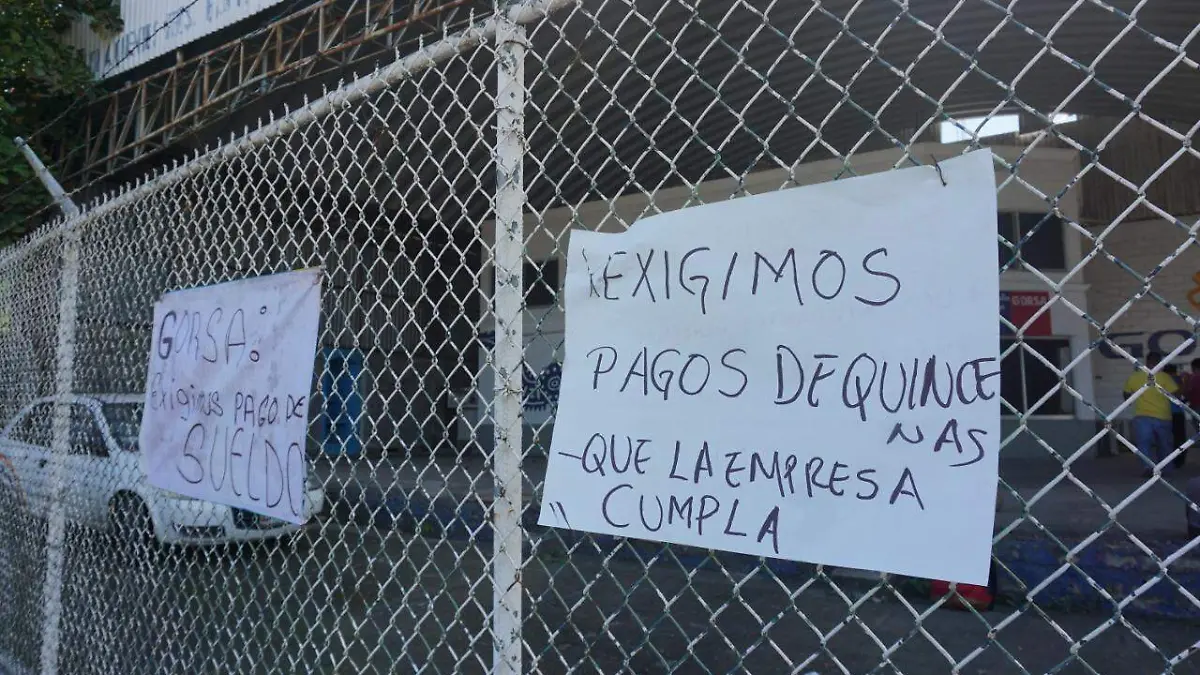 GORSA:
Exigimos PAGO DE
SUELDO
EXIGIMOS
PAGOS DE QUINCE
NAS
-QUE LA EMPRESA
" CUMPLA
GORSA
GO